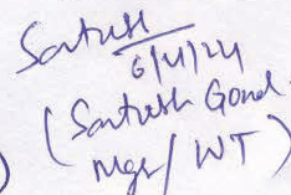 Santosh
6/4/24
(Santosh Gond
Mgr/WT)
)